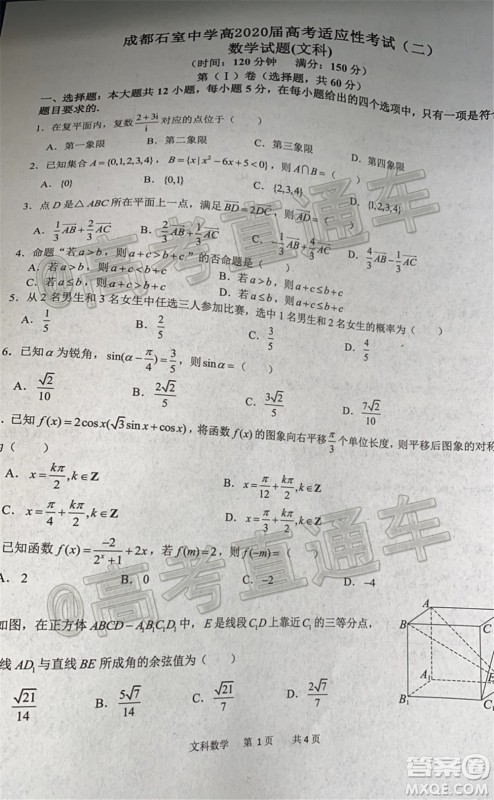 成都石室中学高2020届高考适应性考试（二）
数学试题(文科)
(时间：120分钟 满分：150分)
第（Ⅰ）卷（选择题，共60分）
一、选择题：本大题共12小题，每小题5分，在每小题给出的四个选项中，只有一项是符合
题目要求的.
1. 在复平面内，复数(2+3i)/i对应的点位于（ ）
A. 第一象限 B. 第二象限 C. 第三象限 D. 第四象限
2. 已知集合A={0,1,2,3,4}，B={x|x²-6x+5<0}，则A∩B=（ ）
A. {0} B. {0,1} C. {2,3,4} D. {1,2,4}
3. 点D是△ABC所在平面上一点，满足BD=2DC，则AD=（ ）
A. 1/3 AB + 2/3 AC B. 2/3 AB + 1/3 AC C. -1/3 AB + 4/3 AC D. 4/3 AB - 1/3 AC
4. 命题“若a>b，则a+c>b+c”的否命题是（ ）
A. 若a>b，则a+c≤b+c B. 若a≤b，则a+c>b+c
C. 若a>b，则a+c<b+c D. 若a≤b，则a+c≤b+c
5. 从2名男生和3名女生中任选三人参加比赛，选中1名男生和2名女生的概率为（ ）
A. 1/5 B. 2/5 C. 3/5 D. 4/5
6. 已知α为锐角，sin(α-π/4)=3/5，则sinα=（ ）
A. √2/10 B. 2√2/5 C. 3√2/5 D. 7√2/10
. 已知f(x)=2cosx(√3sinx+cosx)，将函数f(x)的图象向右平移π/3个单位长度，则平移后图象的对称
（ ）
A. x=kπ/2,k∈Z B. x=π/12+kπ/2,k∈Z
C. x=π/4+kπ/2,k∈Z D. x=π/3+kπ/2,k∈Z
已知函数f(x)=-2/(2ˣ+1)+2x，若f(m)=2，则f(-m)=（ ）
A. 2 B. 0 C. -2 D. -4
如图，在正方体ABCD-A₁B₁C₁D₁中，E是线段C₁D上靠近C₁的三等分点，
线AD₁与直线BE所成角的余弦值为（ ）
√21/14 B. 5√7/14 C. √21/7 D. 2√7/7
A
B
C
A₁
B₁
C₁
E
文科数学 第1页 共4页
@高考直通车
@高考直通车
答案圈
MXQE.COM